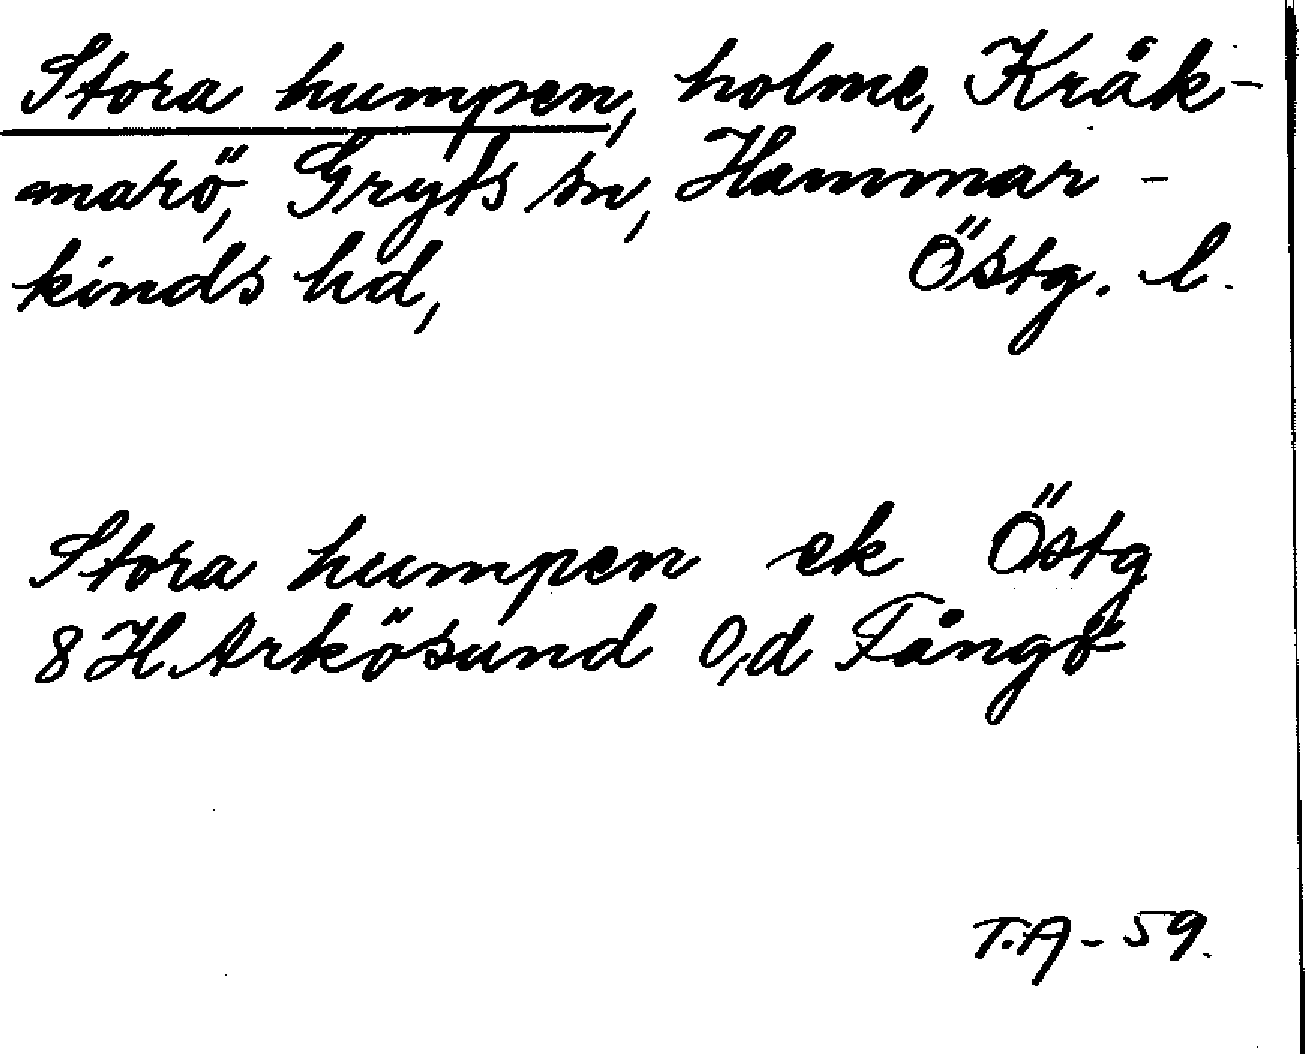 Stora humpen, holme, Kråk-
marö, Gryts sn, Hammar-
kinds hd, Östg. l.
Stora humpen ek Östg
8 H Arkösund 0,d Fångö
T.A - 59.